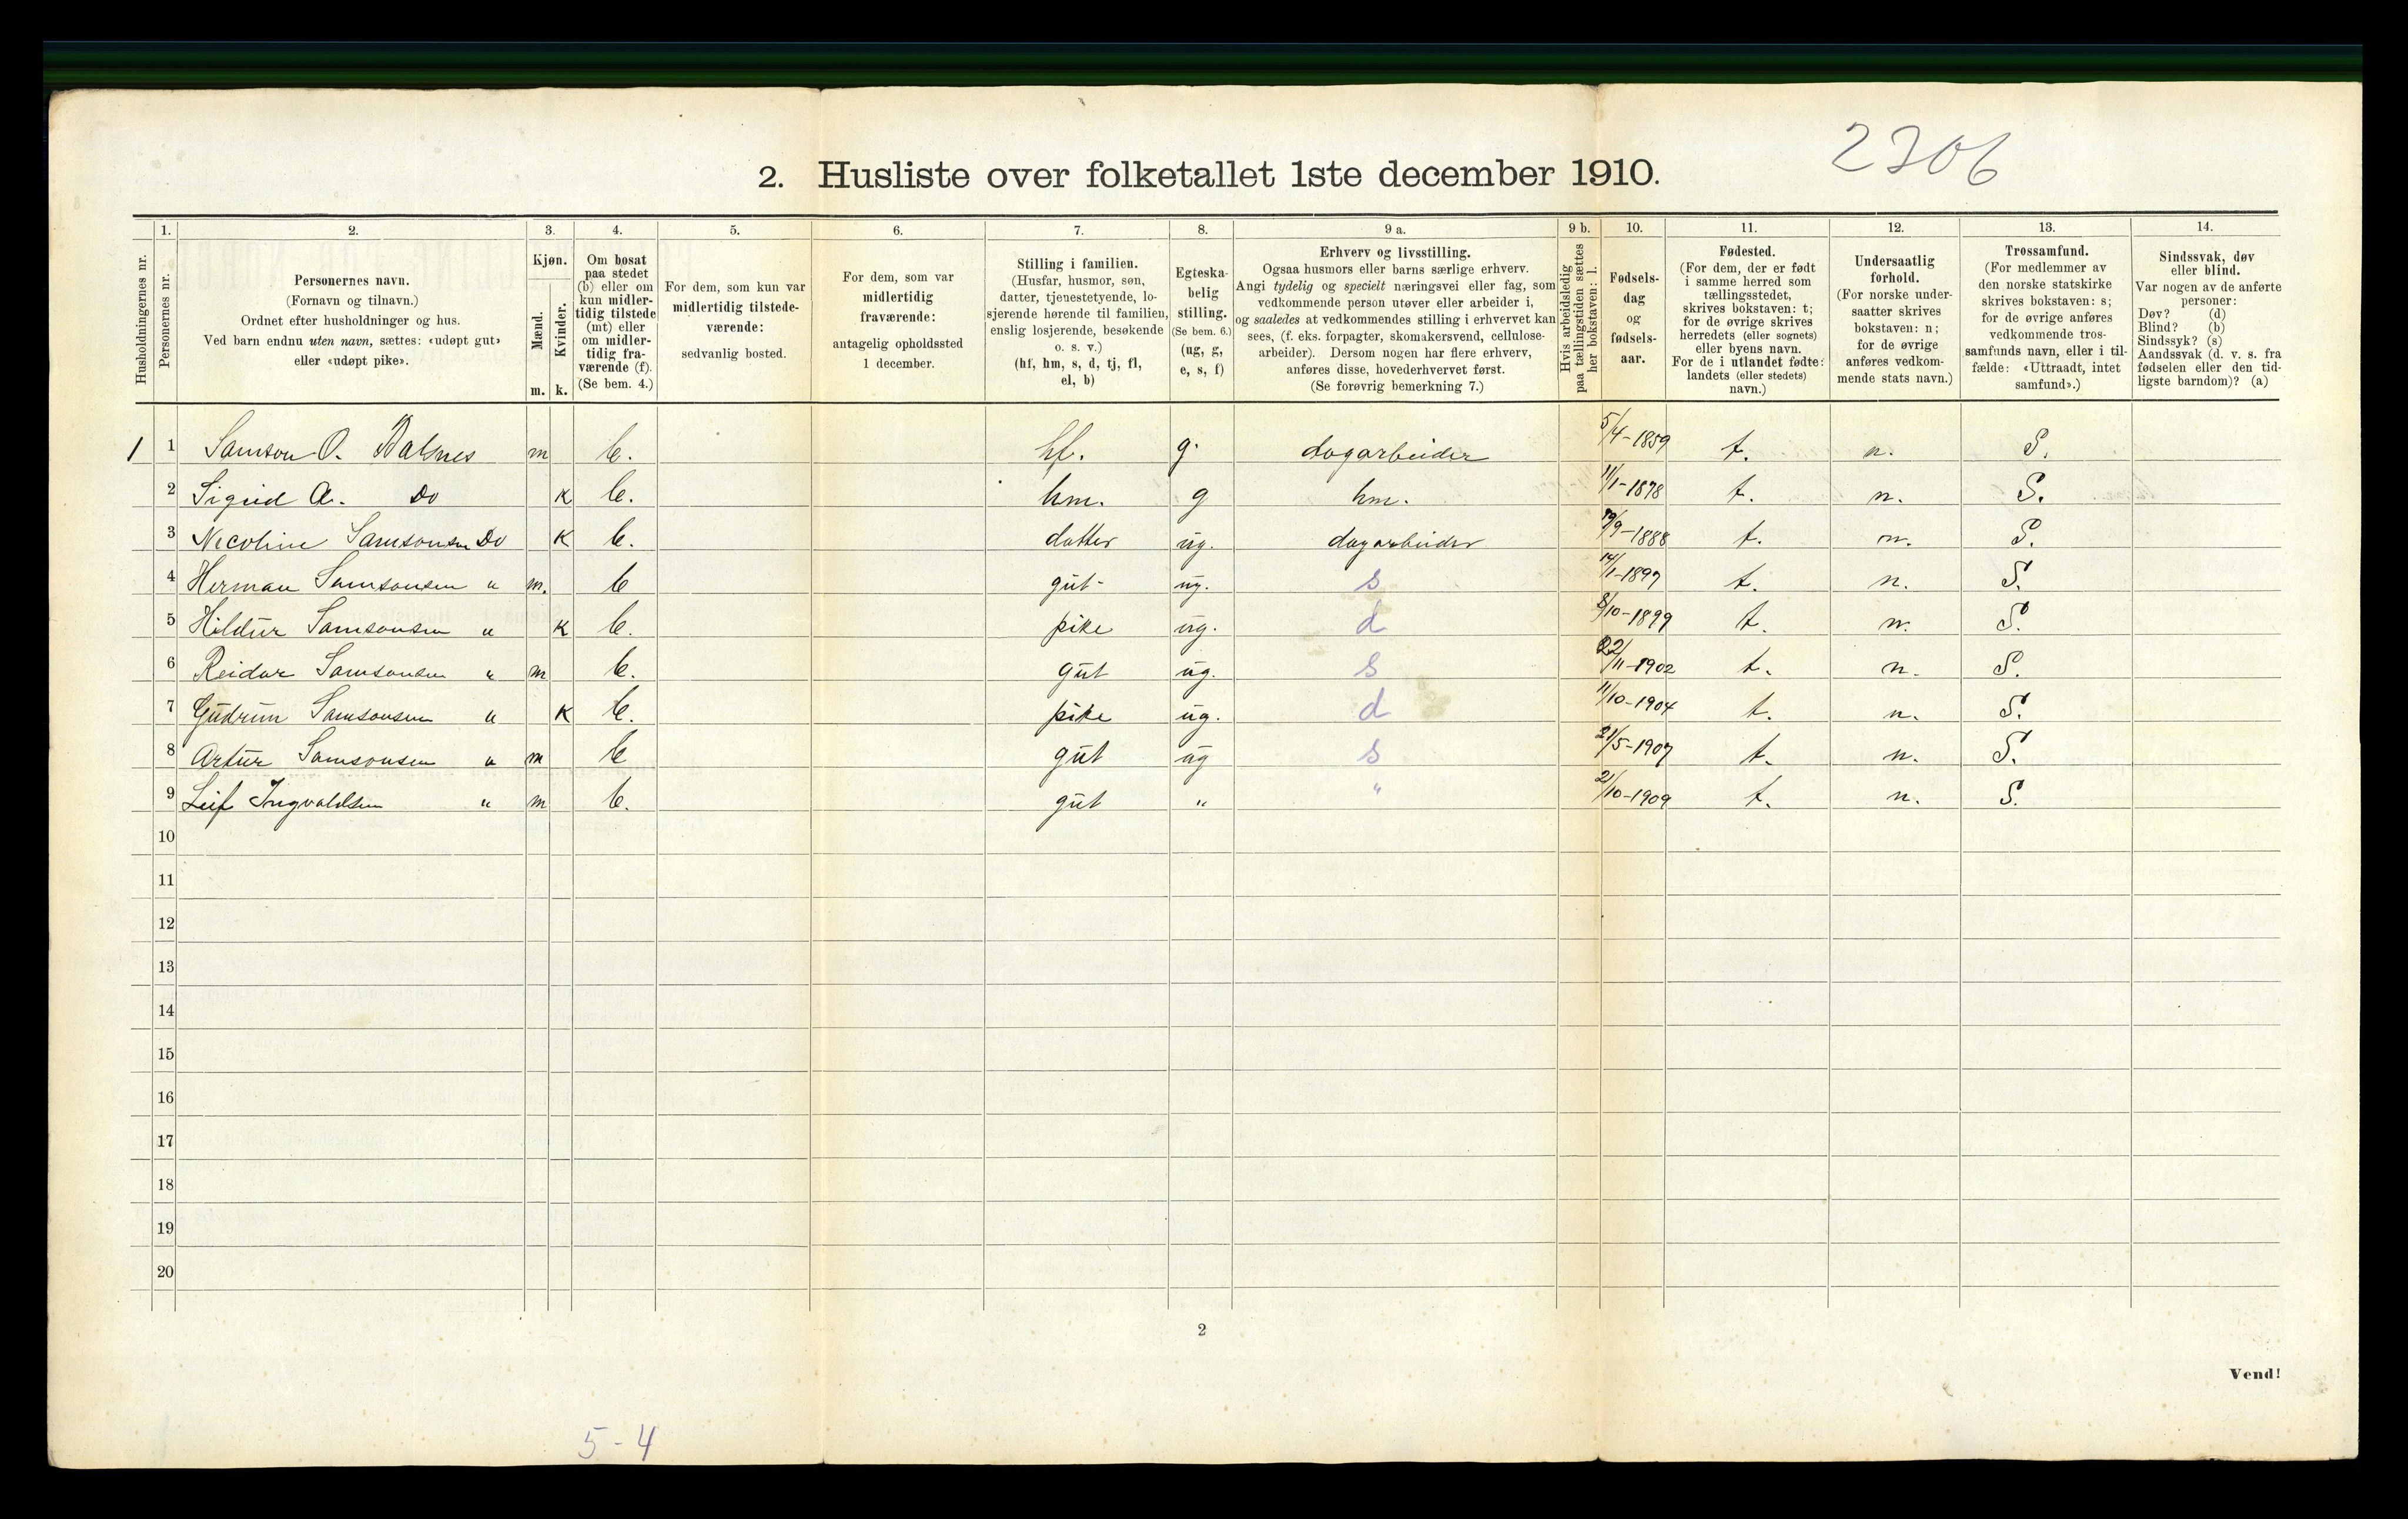 2306
2. Husliste over folketallet 1ste december 1910.
Husholdningernes nr.
1.
Personernes nr.
2.
Personernes navn.
(Fornavn og tilnavn.)
Ordnet efter husholdninger og hus.
Ved barn endnu uten navn, sættes: «udøpt gut»
eller «udøpt pike».
3.
Kjøn.
Mænd.
m.
Kvinder.
k.
4.
Om bosat
paa stedet
(b) eller om
kun midler-
tidig tilstede
(mt) eller
om midler-
tidig fra-
værende (f).
(Se bem. 4.)
5.
For dem, som kun var
midlertidig tilstede-
værende:
sedvanlig bosted.
6.
For dem, som var
midlertidig
fraværende:
antagelig opholdssted
1 december.
7.
Stilling i familien.
(Husfar, husmor, søn,
datter, tjenestetyende, lo-
sjerende hørende til familien,
enslig losjerende, besøkende
o. s. v.)
(hf, hm, s, d, tj, fl,
el, b)
8.
Egteska-
belig
stilling.
(Se bem. 6.)
(ug, g,
e, s, f)
9 a.
Erhverv og livsstilling.
Ogsaa husmors eller barns særlige erhverv.
Angi tydelig og specielt næringsvei eller fag, som
vedkommende person utøver eller arbeider i,
og saaledes at vedkommendes stilling i erhvervet kan
sees, (f. eks. forpagter, skomakersvend, cellulose-
arbeider). Dersom nogen har flere erhverv,
anføres disse, hovederhvervet først.
(Se forøvrig bemerkning 7.)
9 b.
Hvis arbeidsledig
paa tællingstiden sættes
her bokstaven: l.
10.
Fødsels-
dag
og
fødsels-
aar.
11.
Fødested.
(For dem, der er født
i samme herred som
tællingsstedet,
skrives bokstaven: t;
for de øvrige skrives
herredets (eller sognets)
eller byens navn.
For de i utlandet fødte:
landets (eller stedets)
navn.)
12.
Undersaatlig
forhold.
(For norske under-
saatter skrives
bokstaven: n;
for de øvrige
anføres vedkom-
mende stats navn.)
13.
Trossamfund.
(For medlemmer av
den norske statskirke
skrives bokstaven: s;
for de øvrige anføres
vedkommende tros-
samfunds navn, eller i til-
fælde: «Uttraadt, intet
samfund».)
14.
Sindssvak, døv
eller blind.
Var nogen av de anførte
personer:
Døv? (d)
Blind? (b)
Sindssyk? (s)
Aandssvak (d. v. s. fra
fødselen eller den tid-
ligste barndom)? (a)
1 1 Samson O. Balsnes m b. hf. g. dagarbeider 5/4-1859 t. n. S.
2 Sigrid A. Do k b. hm. g hm. 11/1-1878 t. n. S.
3 Nicoline Samsonsen Do k b. datter ug. dagarbeider /9-1888 t. n. S.
4 Herman Samsonsen " m. b gut ug. s 14/1-1897 t. n. S.
5 Hildur Samsonsen " k b. pike ug. d 8/10-1899 t. n. S.
6 Reidar Samsonsen " m b. gut ug. s 22/11-1902 t. n. S.
7 Gudrun Samsonsen " k b. pike ug. d 11/10-1904 t. n. S.
8 Artur Samsonsen " m b gut ug s 21/5-1907 t. n. S.
9 Leif Ingvaldsen " m b. gut " " 2/10-1909 t. n. S.
10
11
12
13
14
15
16
17
18
19
20
2
Vend!
5-4